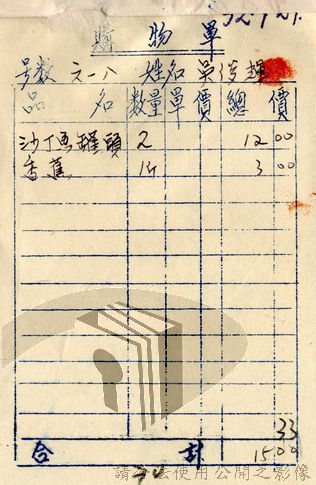 52.1.21.
購物單
号數 六一八 姓名 吳俊輝
品名 數量 單價 總價
沙丁魚罐頭 2 12 00
香蕉 1斤 3 00
33
合計 15.00
請合法使用公開之影像